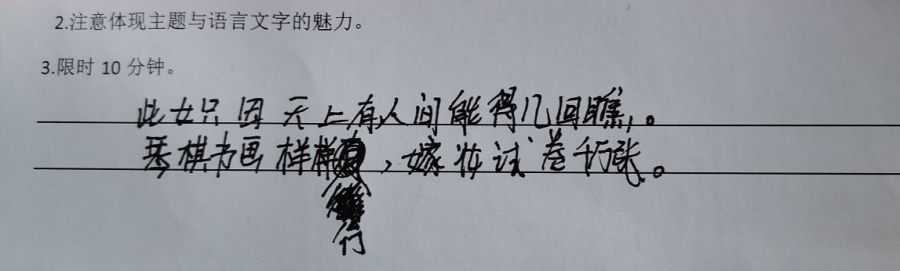 2.注意体现主题与语言文字的魅力。
3.限时 10 分钟。
此女只因天上有人间能得几回瞧。
琴棋书画样样行，嫁妆试卷千万张。